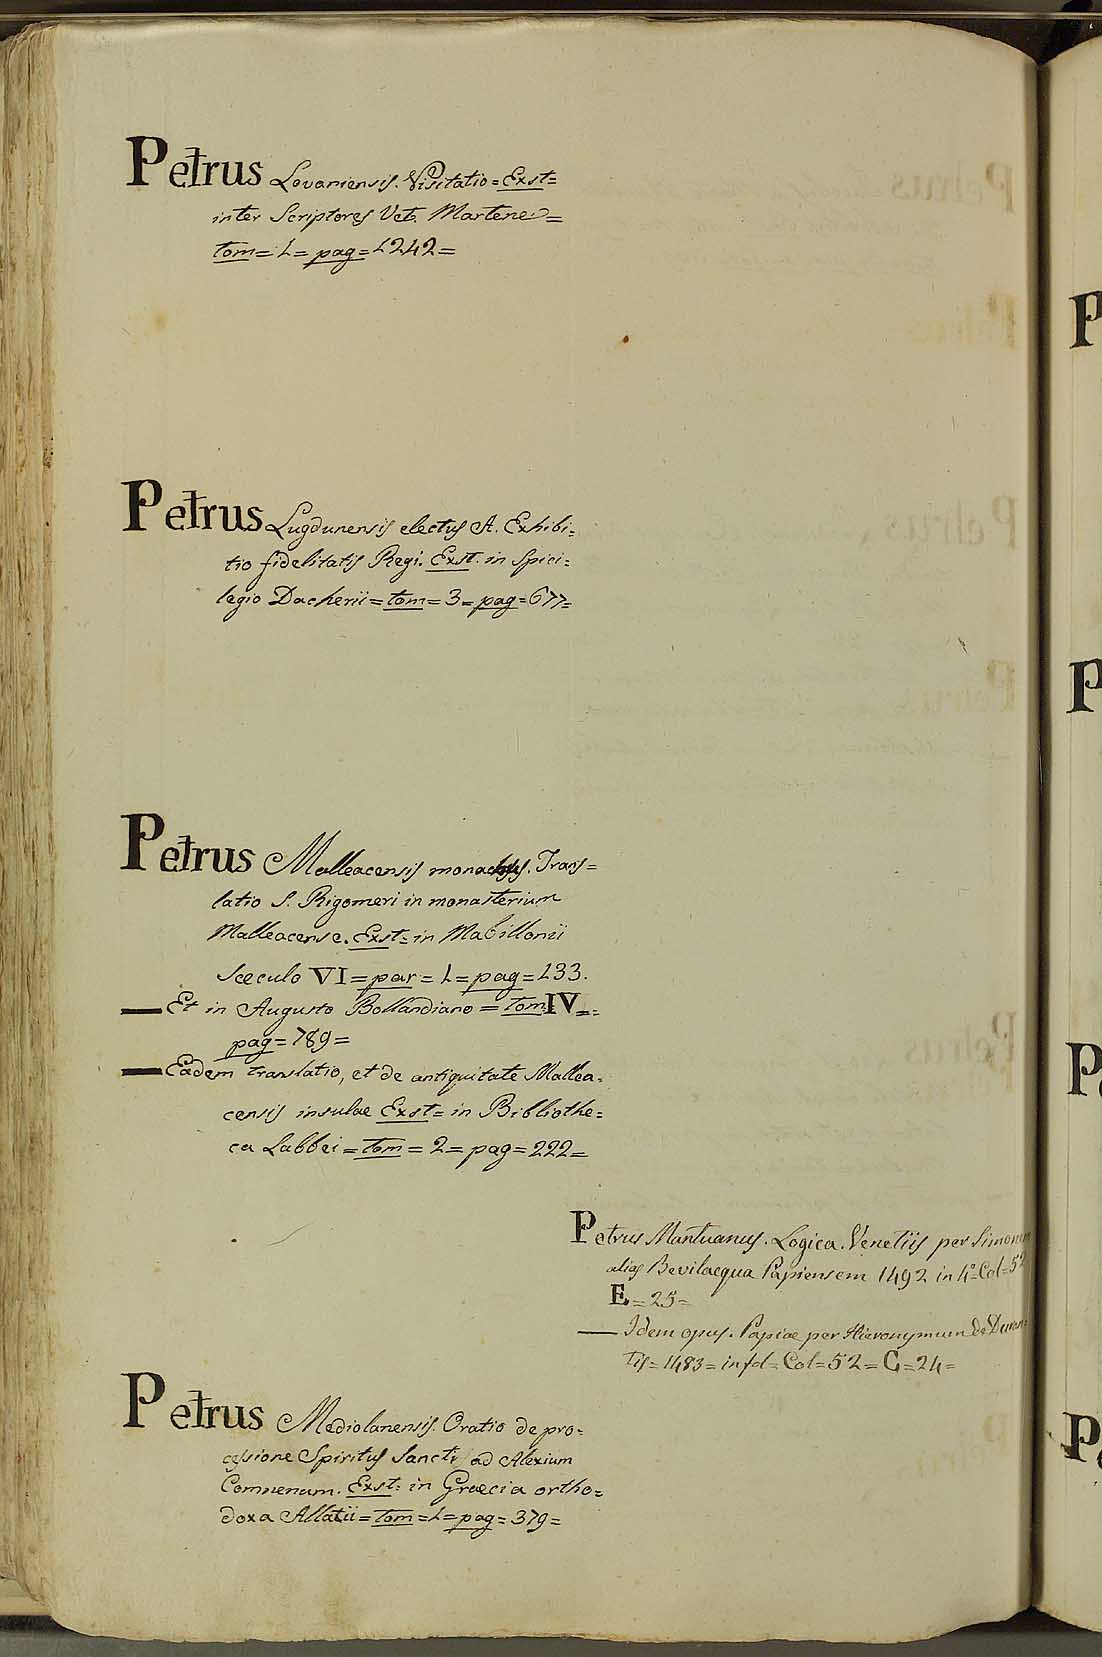 Petrus Lovaniensis. Visitatio= Exst=
inter Scriptores Vet. Martene=
tom=1=pag=1242=
Petrus Lugdunensis electus A. Exhibi=
tio fidelitatis Regi. Exst. in Spici=
legio Dacherii=tom=3=pag=677=
Petrus Malleacensis monachus. Trans=
latio S. Rigomeri in monasterium
Malleacense. Exst= in Mabillonii
Sæculo VI=par=1=pag=133.
— Et in Augusto Bollandiano=tom IV=
pag=789=
— Eadem translatio, et de antiquitate Mallea=
censis insulae Exst= in Bibliothe=
ca Labbei=tom=2=pag=222=
Petrus Mantuanus. Logica. Venetiis per Simonem
alias Bevilacqua Papiensem 1492 in 4º=Col=52
E=25=
— Idem opus. Papiae per Hieronymum de Duran=
tis=1483=in fol=Col=52=C=24=
Petrus Mediolanensis. Oratio de pro=
cessione Spiritus Sancti ad Alexium
Comnenum. Exst= in Græcia ortho=
doxa Allatii=tom=1=pag=379=